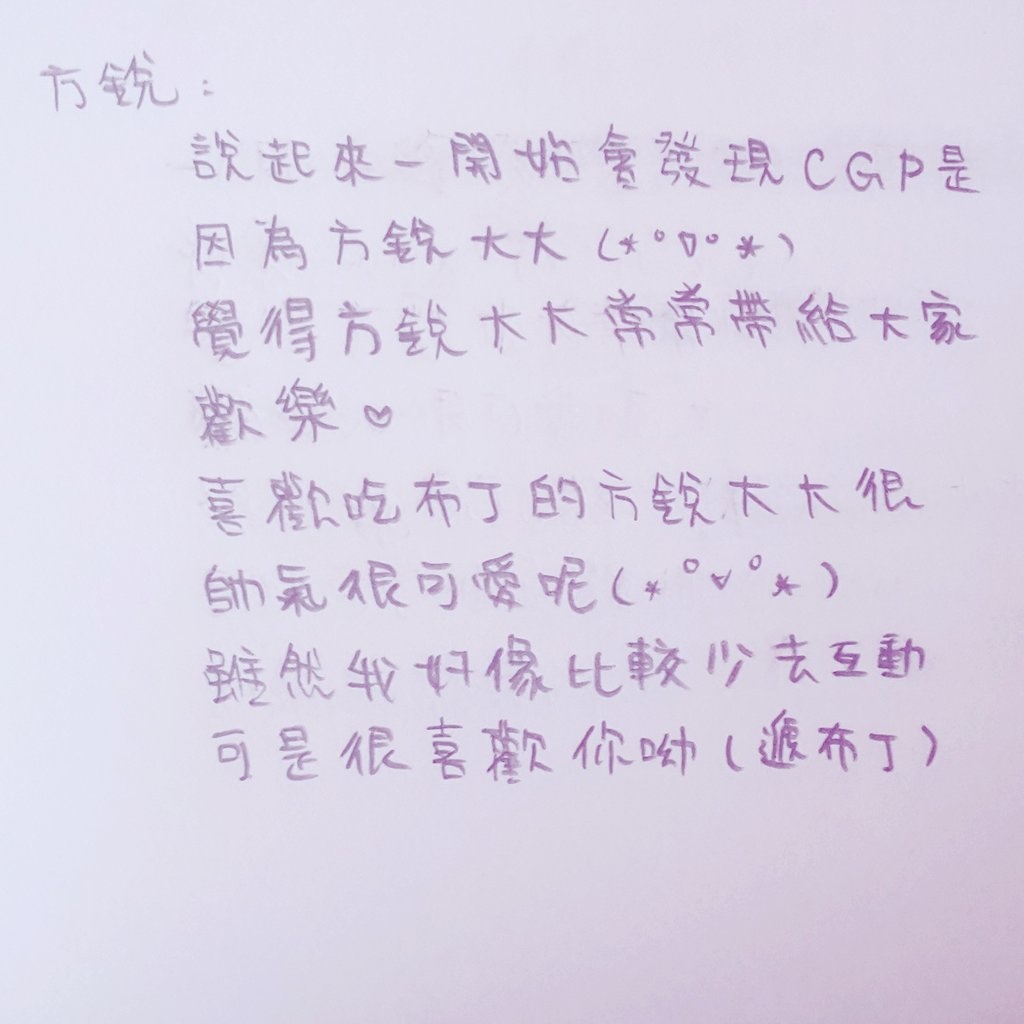 方銳：
說起來一開始會發現CGP是
因為方銳大大(*°▽°*)
覺得方銳大大常常帶給大家
歡樂♡
喜歡吃布丁的方銳大大很
帥氣很可愛呢(*°v°*)
雖然我好像比較少去互動
可是很喜歡你呦(遞布丁)